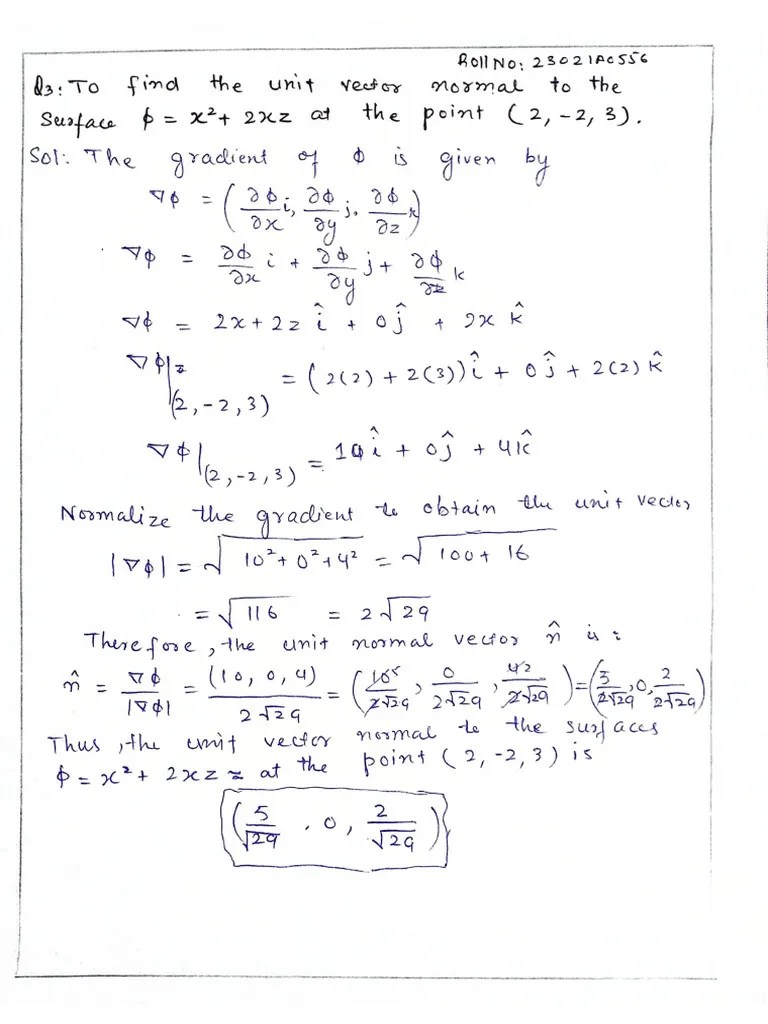 Roll No: 23021AC556
Q3: To find the unit vector normal to the
Surface ϕ = x² + 2xz at the point (2, -2, 3).
Sol: The gradient of ϕ is given by
∇ϕ = (∂ϕ/∂x i, ∂ϕ/∂y j, ∂ϕ/∂z k)
∇ϕ = ∂ϕ/∂x i + ∂ϕ/∂y j + ∂ϕ/∂z k
∇ϕ = 2x + 2z î + 0ĵ + 2x k̂
∇ϕ|(2, -2, 3) = (2(2) + 2(3))î + 0ĵ + 2(2) k̂
∇ϕ|(2, -2, 3) = 10î + 0ĵ + 4k̂
Normalize the gradient to obtain the unit vector
|∇ϕ| = √(10² + 0² + 4²) = √(100 + 16)
= √116 = 2√29
Therefore, the unit normal vector n̂ is:
n̂ = ∇ϕ/|∇ϕ| = (10, 0, 4)/2√29 = (10 5/2√29, 0/2√29, 4 2/2√29) = (5/2√29, 0, 2/2√29)
Thus, the unit vector normal to the surfaces
ϕ = x² + 2xz at the point (2, -2, 3) is
(5/√29 . 0, 2/√29)